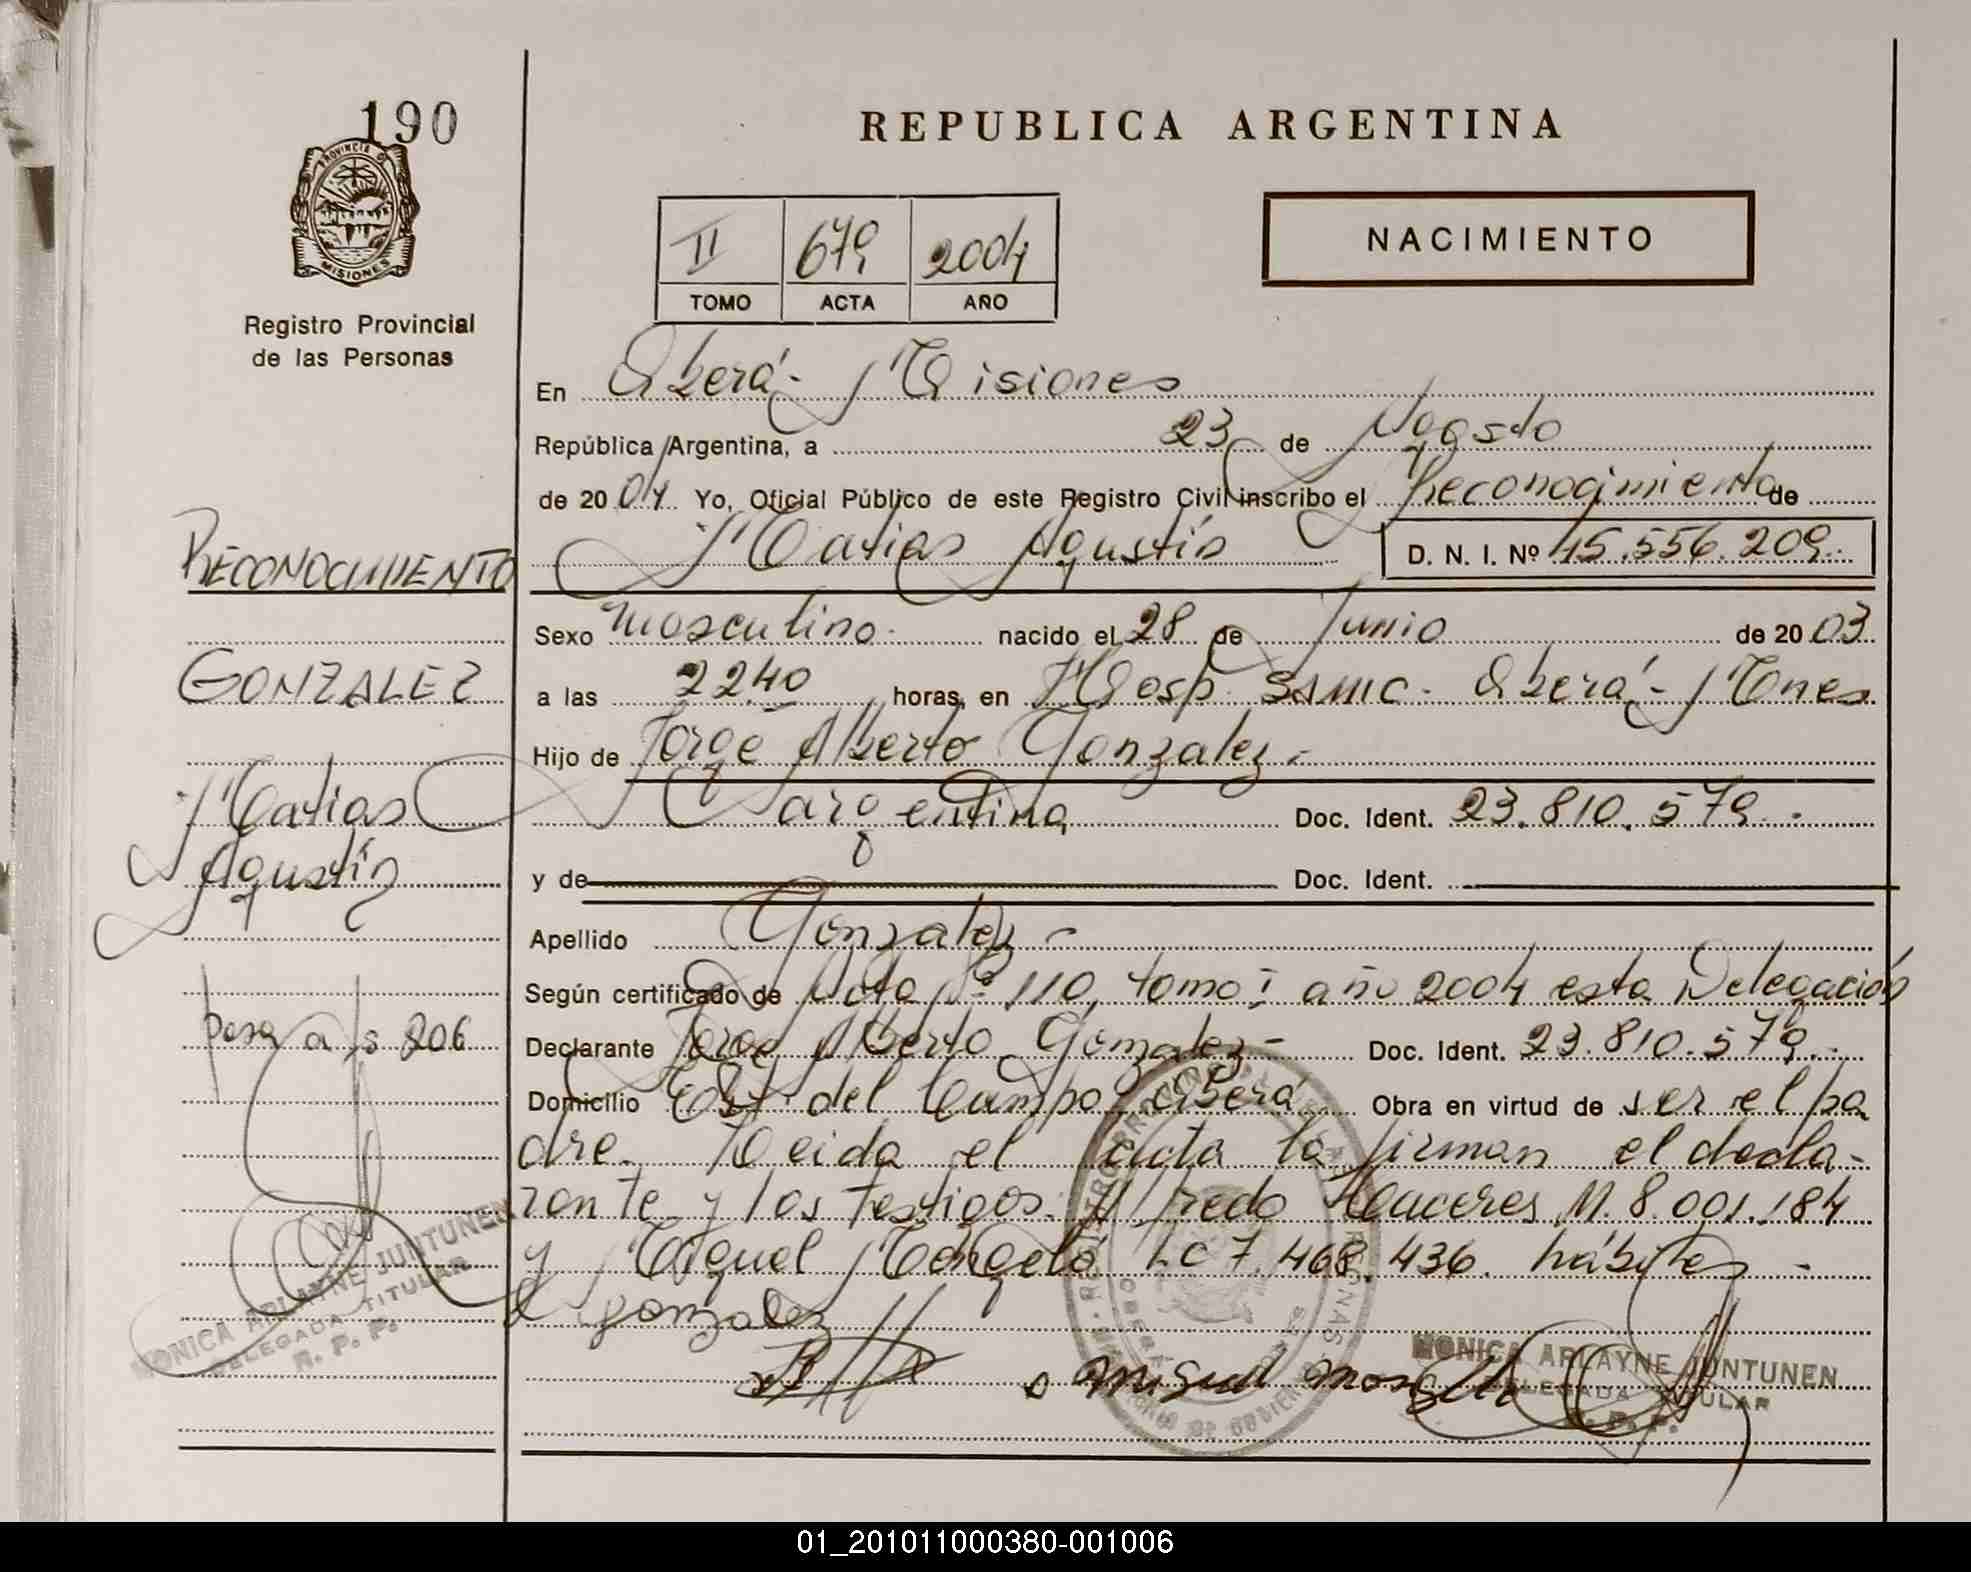 190
PROVINCIA DE
MISIONES
Registro Provincial
de las Personas
REPUBLICA ARGENTINA
II 679 2004
TOMO ACTA AÑO
NACIMIENTO
En Oberá - Misiones
República Argentina, a 23 de Agosto
de 2004 Yo, Oficial Público de este Registro Civil inscribo el Reconocimiento de
Matias Agustín D. N. I. Nº 45.556.209.-
Sexo masculino.- nacido el 28 de Junio de 2003
a las 22.40 horas, en Hosp. SAMIC - Oberá - Mnes
Hijo de Jorge Alberto Gonzalez.-
argentina Doc. Ident. 23.810.579.-
y de Doc. Ident.
Apellido Gonzalez -
Según certificado de Acta Nº 110, tomo I año 2004 esta Delegación
Declarante Jorge Alberto Gonzalez - Doc. Ident. 23.810.579.-
Domicilio del Campo Oberá Obra en virtud de ser el pa
dre. Leida el acta la firman el decla-
rante y los testigos: Alfredo M. 8.001.184
y Miguel LC 7.468.436. hábiles -
gonzalez
Miguel
MONICA ARLAYNE JUNTUNEN
DELEGADA TITULAR
R. P. P.
RECONOCIMIENTO
GONZALEZ
Matias
Agustín
pasa a fs 206
MONICA ARLAYNE JUNTUNEN
DELEGADA TITULAR
R. P. P.
01_201011000380-001006